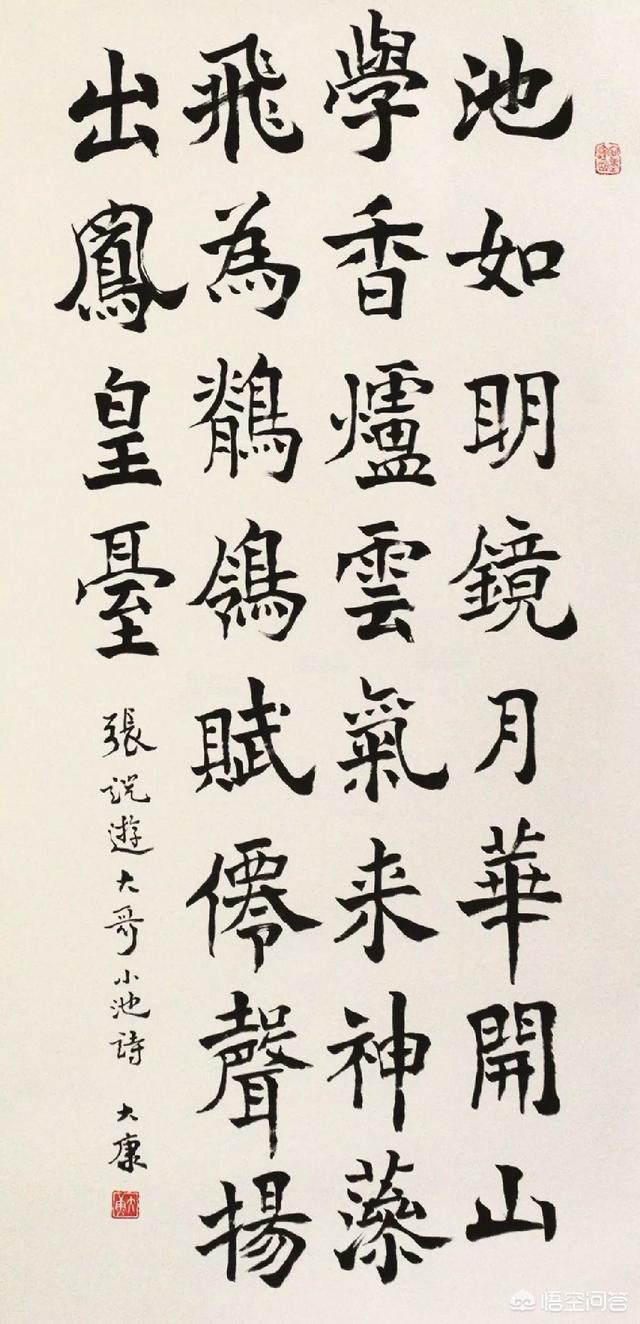 池如明鏡月華開山
學香爐雲氣来神藻
飛為鶺鴒賦僊聲揚
出鳳皇臺
張説遊大哥小池詩 大康
大康
悟空问答